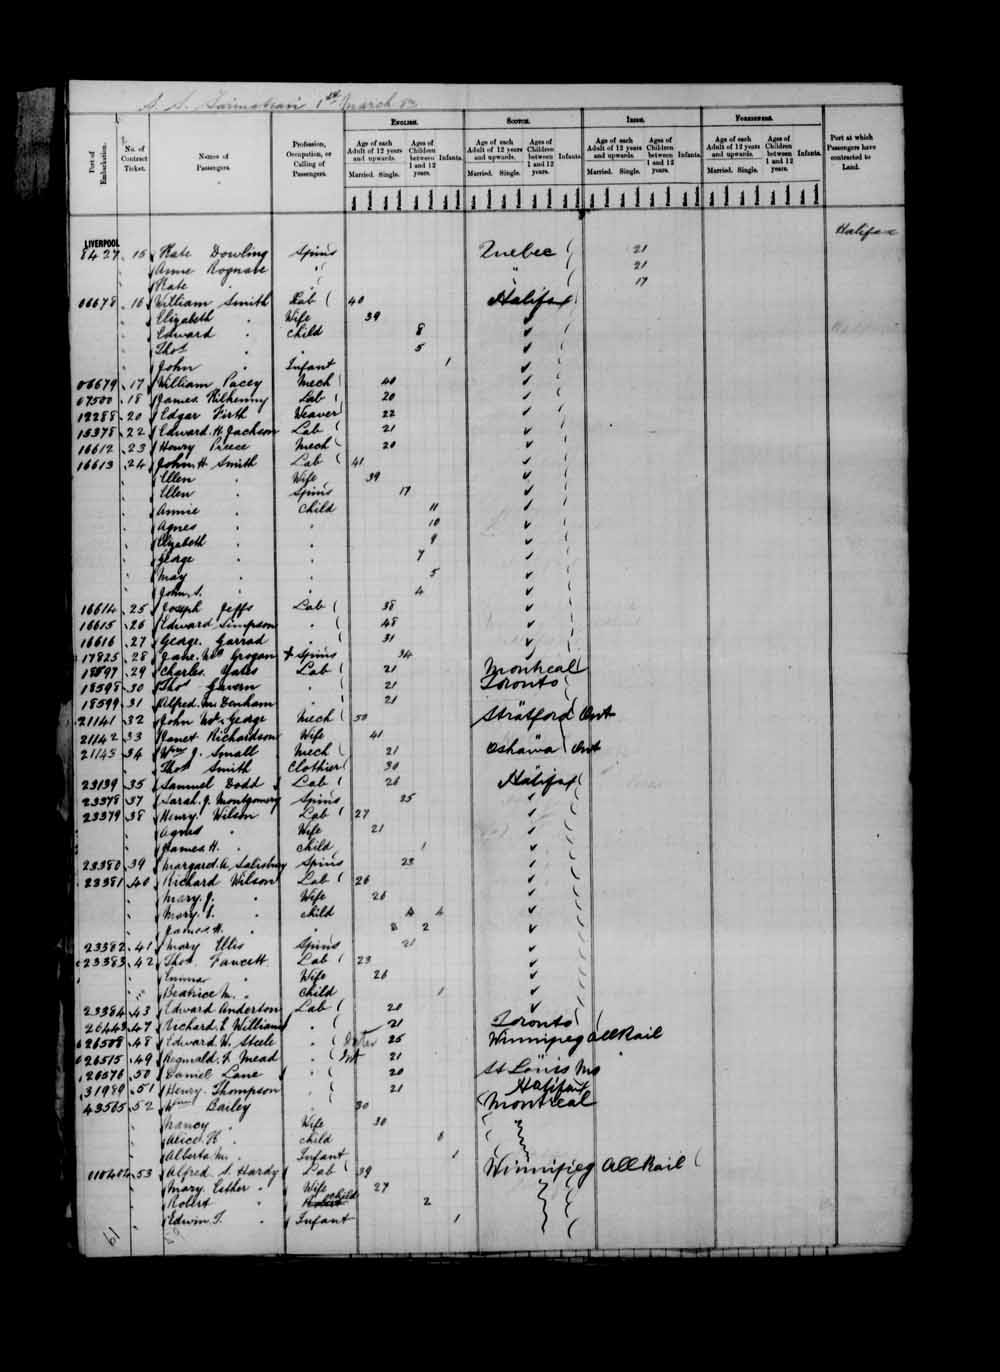 S. S. Sarmatian 1st March 83
ENGLISH. SCOTCH. IRISH. FOREIGNERS.
Port of Embarkation. No. of Contract Ticket. Names of Passengers. Profession, Occupation, or Calling of Passengers. Age of each Adult of 12 years and upwards. Ages of Children between 1 and 12 years. Infants. Age of each Adult of 12 years and upwards. Ages of Children between 1 and 12 years. Infants. Age of each Adult of 12 years and upwards. Ages of Children between 1 and 12 years. Infants. Age of each Adult of 12 years and upwards. Ages of Children between 1 and 12 years. Infants. Port at which Passengers have contracted to Land.
Married. Single. Married. Single. Married. Single. Married. Single.
Halifax
LIVERPOOL
8427 15 Kate Dowling Spins Quebec 21
Annie " 21
Kate " 17
06678 16 William Smith Lab 40 Halifax
Elizabeth " Wife 39 ✓
Edward " Child 8 ✓
Thos " " 5 ✓
John " Infant 1 ✓
06679 17 William Pacey Mech 40 ✓
07500 18 James Kilhenny Lab 20 ✓
12288 20 Edgar Firth Weaver 22 ✓
15378 22 Edward H. Jackson Lab 21 ✓
16612 23 Henry Preece Mech 20 ✓
16613 24 John H. Smith Lab 41 ✓
Ellen " Wife 39 ✓
Ellen " Spins 17 ✓
Annie " Child 11 ✓
Agnes " " 10 ✓
Elizabeth " " 9 ✓
George " " 7 ✓
May " " 5 ✓
John S. " " 4 ✓
16614 25 Joseph Jeffs Lab 38 ✓
16615 26 Edward Simpson " 48 ✓
16616 27 George Garrad " 31 ✓
17825 28 Jane Mc Grogan + Spins 34 ✓
18597 29 Charles Yates Lab 21 Montreal
18598 30 Thos Gavern " 21 Toronto
18599 31 Alfred Mc Denham " 21
21141 32 John Mc George Mech 50 Stratford Ont
21142 33 Janet Richardson Wife 41
21145 34 Wm J. Small Mech 21 Oshawa Ont
Thos Smith Clothier 30
23139 35 Samuel Dodd Lab 26 Halifax
23378 37 Sarah J. Montgomery Spins 25 ✓
23379 38 Henry Wilson Lab 27 ✓
Agnes " Wife 21 ✓
James H. " Child 1 ✓
23380 39 Margaret A. Salisbury Spins 23 ✓
23381 40 Richard Wilson Lab 26 ✓
Mary J. " Wife 26 ✓
Mary J. " Child 4 ✓
James H. " " 2 ✓
23382 41 Mary Ellis Spins 21 ✓
23383 42 Thos Fawcett Lab 23 ✓
Emma " Wife 26 ✓
Beatrice M. " Child 1 ✓
23384 43 Edward Anderton Lab 20 ✓
26443 47 Richard L. Williams " 21 Toronto
26508 48 Edward W. Steele " 25 Winnipeg All Rail
26515 49 Reginald F. Mead " 21
26576 50 Daniel Lane " 20 St Louis Mo
31989 51 Henry Thompson " 21 Halifax
43565 52 Wm Bailey " 30 Montreal
Nancy " Wife 30
Alice K. " Child 6
Alberta M. " Infant 1
110404 53 Alfred S. Hardy Lab 39 Winnipeg All Rail
Mary Esther " Wife 27
Robert " Child 2
Edwin T. " Infant 1
61